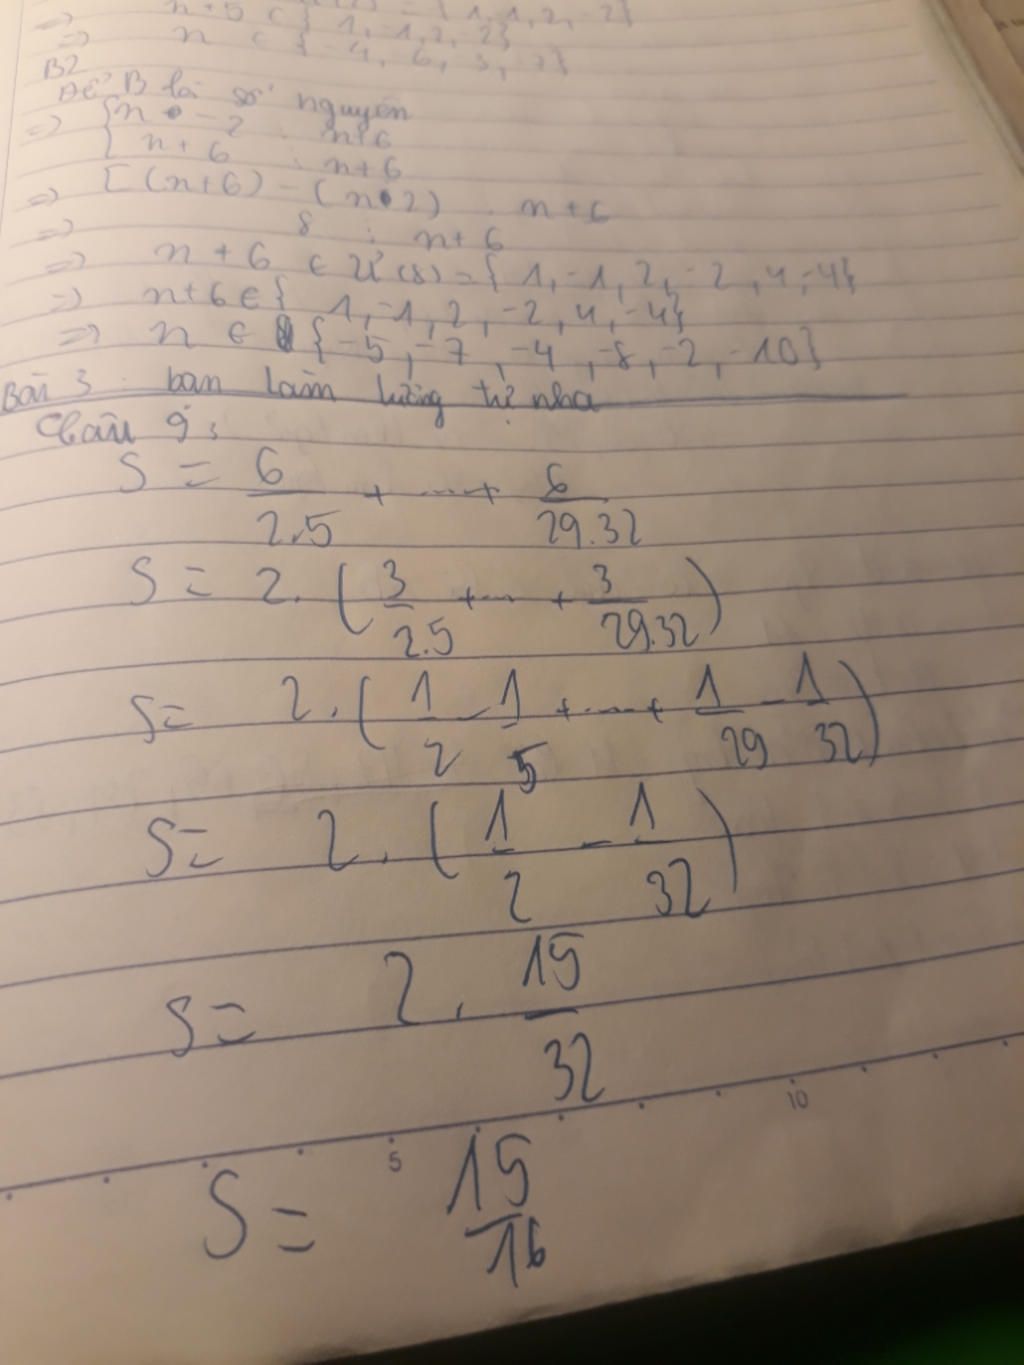 => n+5 ∈ { 1, -1, 2, -2}
=> n ∈ { -4, 6, 3, 7}
B2
Để B là số nguyên
=> { n - 2 ⋮ n+6
n + 6 ⋮ n+6
=> [(n+6) - (n 2) ⋮ n+6
=> 8 ⋮ n+6
=> n + 6 ∈ Ư(8) = { 1, -1, 2, -2, 4, -4}
=> n+6 ∈ { 1, -1, 2, -2, 4, -4}
=> n ∈ { -5, -7, -4, -8, -2, -10}
Bài 3: bạn làm tương tự nha
Câu 9:
S = 6/2.5 + ... + 6/29.32
S = 2. (3/2.5 + ... + 3/29.32)
S = 2. (1/2 - 1/5 + ... + 1/29 - 1/32)
S = 2. (1/2 - 1/32)
S = 2. 15/32
5 10
S = 15/16